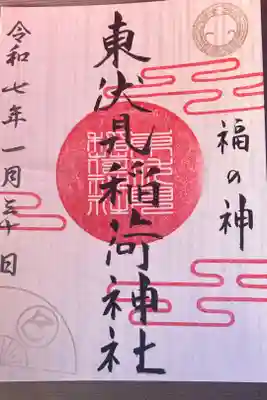 福の神
東伏見稲荷神社
令和七年一月三十日